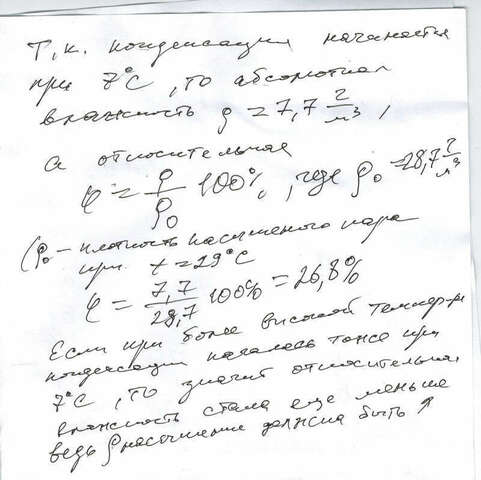 Т.к. конденсация начнается
при 7°C, то абсолютная
влажность ρ = 7,7 г/м³,
а относительная
φ = ρ/ρ₀ 100%, где ρ₀ = 28,7 г/м³
(ρ₀ – плотность насыщенного пара
при t = 29°C
φ = 7,7/28,7 100% = 26,8%
Если при более высокой темпер-ре
конденсация началась тоже при
7°C, то значит относительная
влажность стала еще меньше
ведь ρ насыщения должна быть ↑